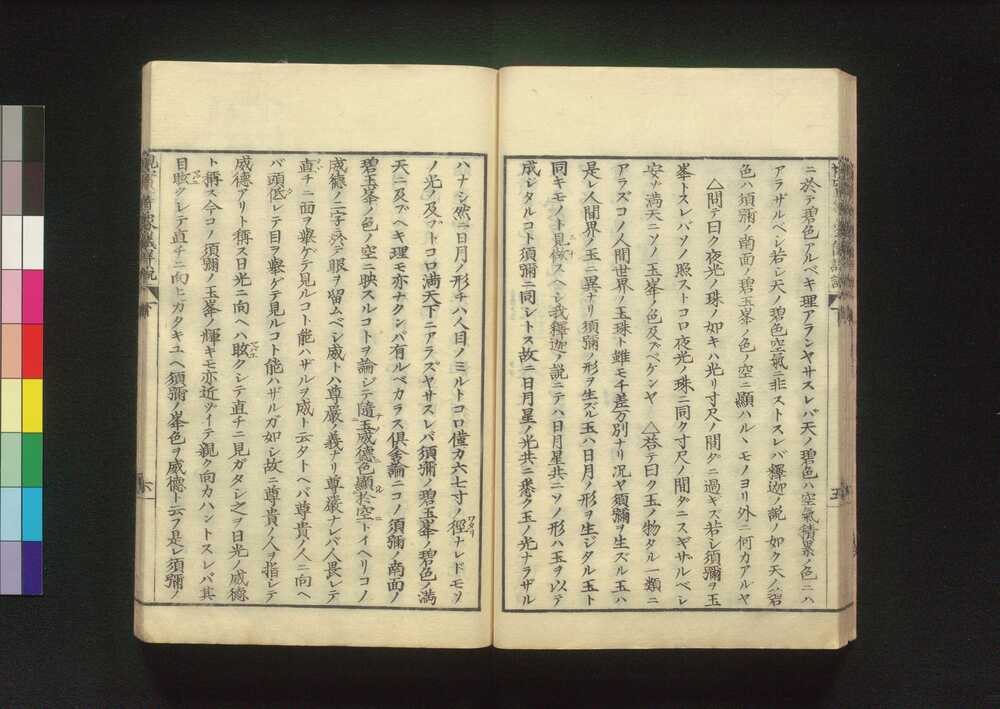 ニ於テ碧色アルベキ理アランヤサスレバ天ノ碧色ハ空氣積累ノ色ニハ
アラザルベシ若シ天ノ碧色空氣ニ非ストスレバ釋迦ノ説ノ如ク天ノ碧
色ハ須彌ノ南面ノ碧玉峯ノ色ノ空ニ顯ハルヽモノヨリ外ニ何カアルヤ
△問テ曰ク夜光ノ珠ノ如キハ光リ寸尺ノ間ダニ過ギズ若シ須彌ヲ玉
峯トスレバソノ照ストコロ夜光ノ珠ニ同ク寸尺ノ間ダニスギザルベシ
安ゾ満天ニソノ玉峯ノ色及ブベケンヤ △荅テ曰ク玉ノ物タル一類ニ
アラズコノ人間世界ノ玉珠ト雖モ千差万別ナリ况ヤ須彌ヲ生ズル玉ハ
是レ人間界ノ玉ニ異ナリ須彌ノ形ヲ生ズル玉ハ日月ノ形ヲ生ジタル玉ト
同キモノト見做スベシ我釋迦ノ説ニテハ日月星共ニソノ形ハ玉ヲ以テ
成シタルコト須彌ニ同シトス故ニ日月星ノ光共ニ悉ク玉ノ光ナラザル
ハナシ然ニ日月ノ形チハ人目ノミルトコロ僅カ六七寸ノ徑ナレドモソ
ノ光ノ及ブトコロ満天下ニアラズヤサスレバ須彌ノ碧玉峯ノ碧色ノ満
天ニ及ブヘキ理モ亦ナクンバ有ルベカラス俱舍論ニコノ須彌ノ南面ノ
碧玉峯ノ色ノ空ニ映スルコトヲ論ジテ隨玉威德色顯於空トイヘリコノ
威德ノ二字㝡モ眼ヲ留ムベシ威トハ尊嚴ノ義ナリ尊嚴ナレバ人畏レテ
直チニ面ヲ擧ゲテ見ルコト能ハザルヲ威ト云タトヘバ尊貴ノ人ニ向ヘ
バ頭低レテ目ヲ擧ゲテ見ルコト能ハザルガ如シ故ニ尊貴ノ人ヲ指シテ
威德アリト稱ス日光ニ向ヘハ眩クシテ直チニ見ガタシ之ヲ日光ノ威德
ト稱ス今コノ須彌ノ玉峯ノ輝キモ亦近ヅイテ親ク向カハントスレバ其
目眩クシテ直チニ向ヒカタキユヘ須彌ノ峯色ヲ威德ト云フ是レ須彌ノ